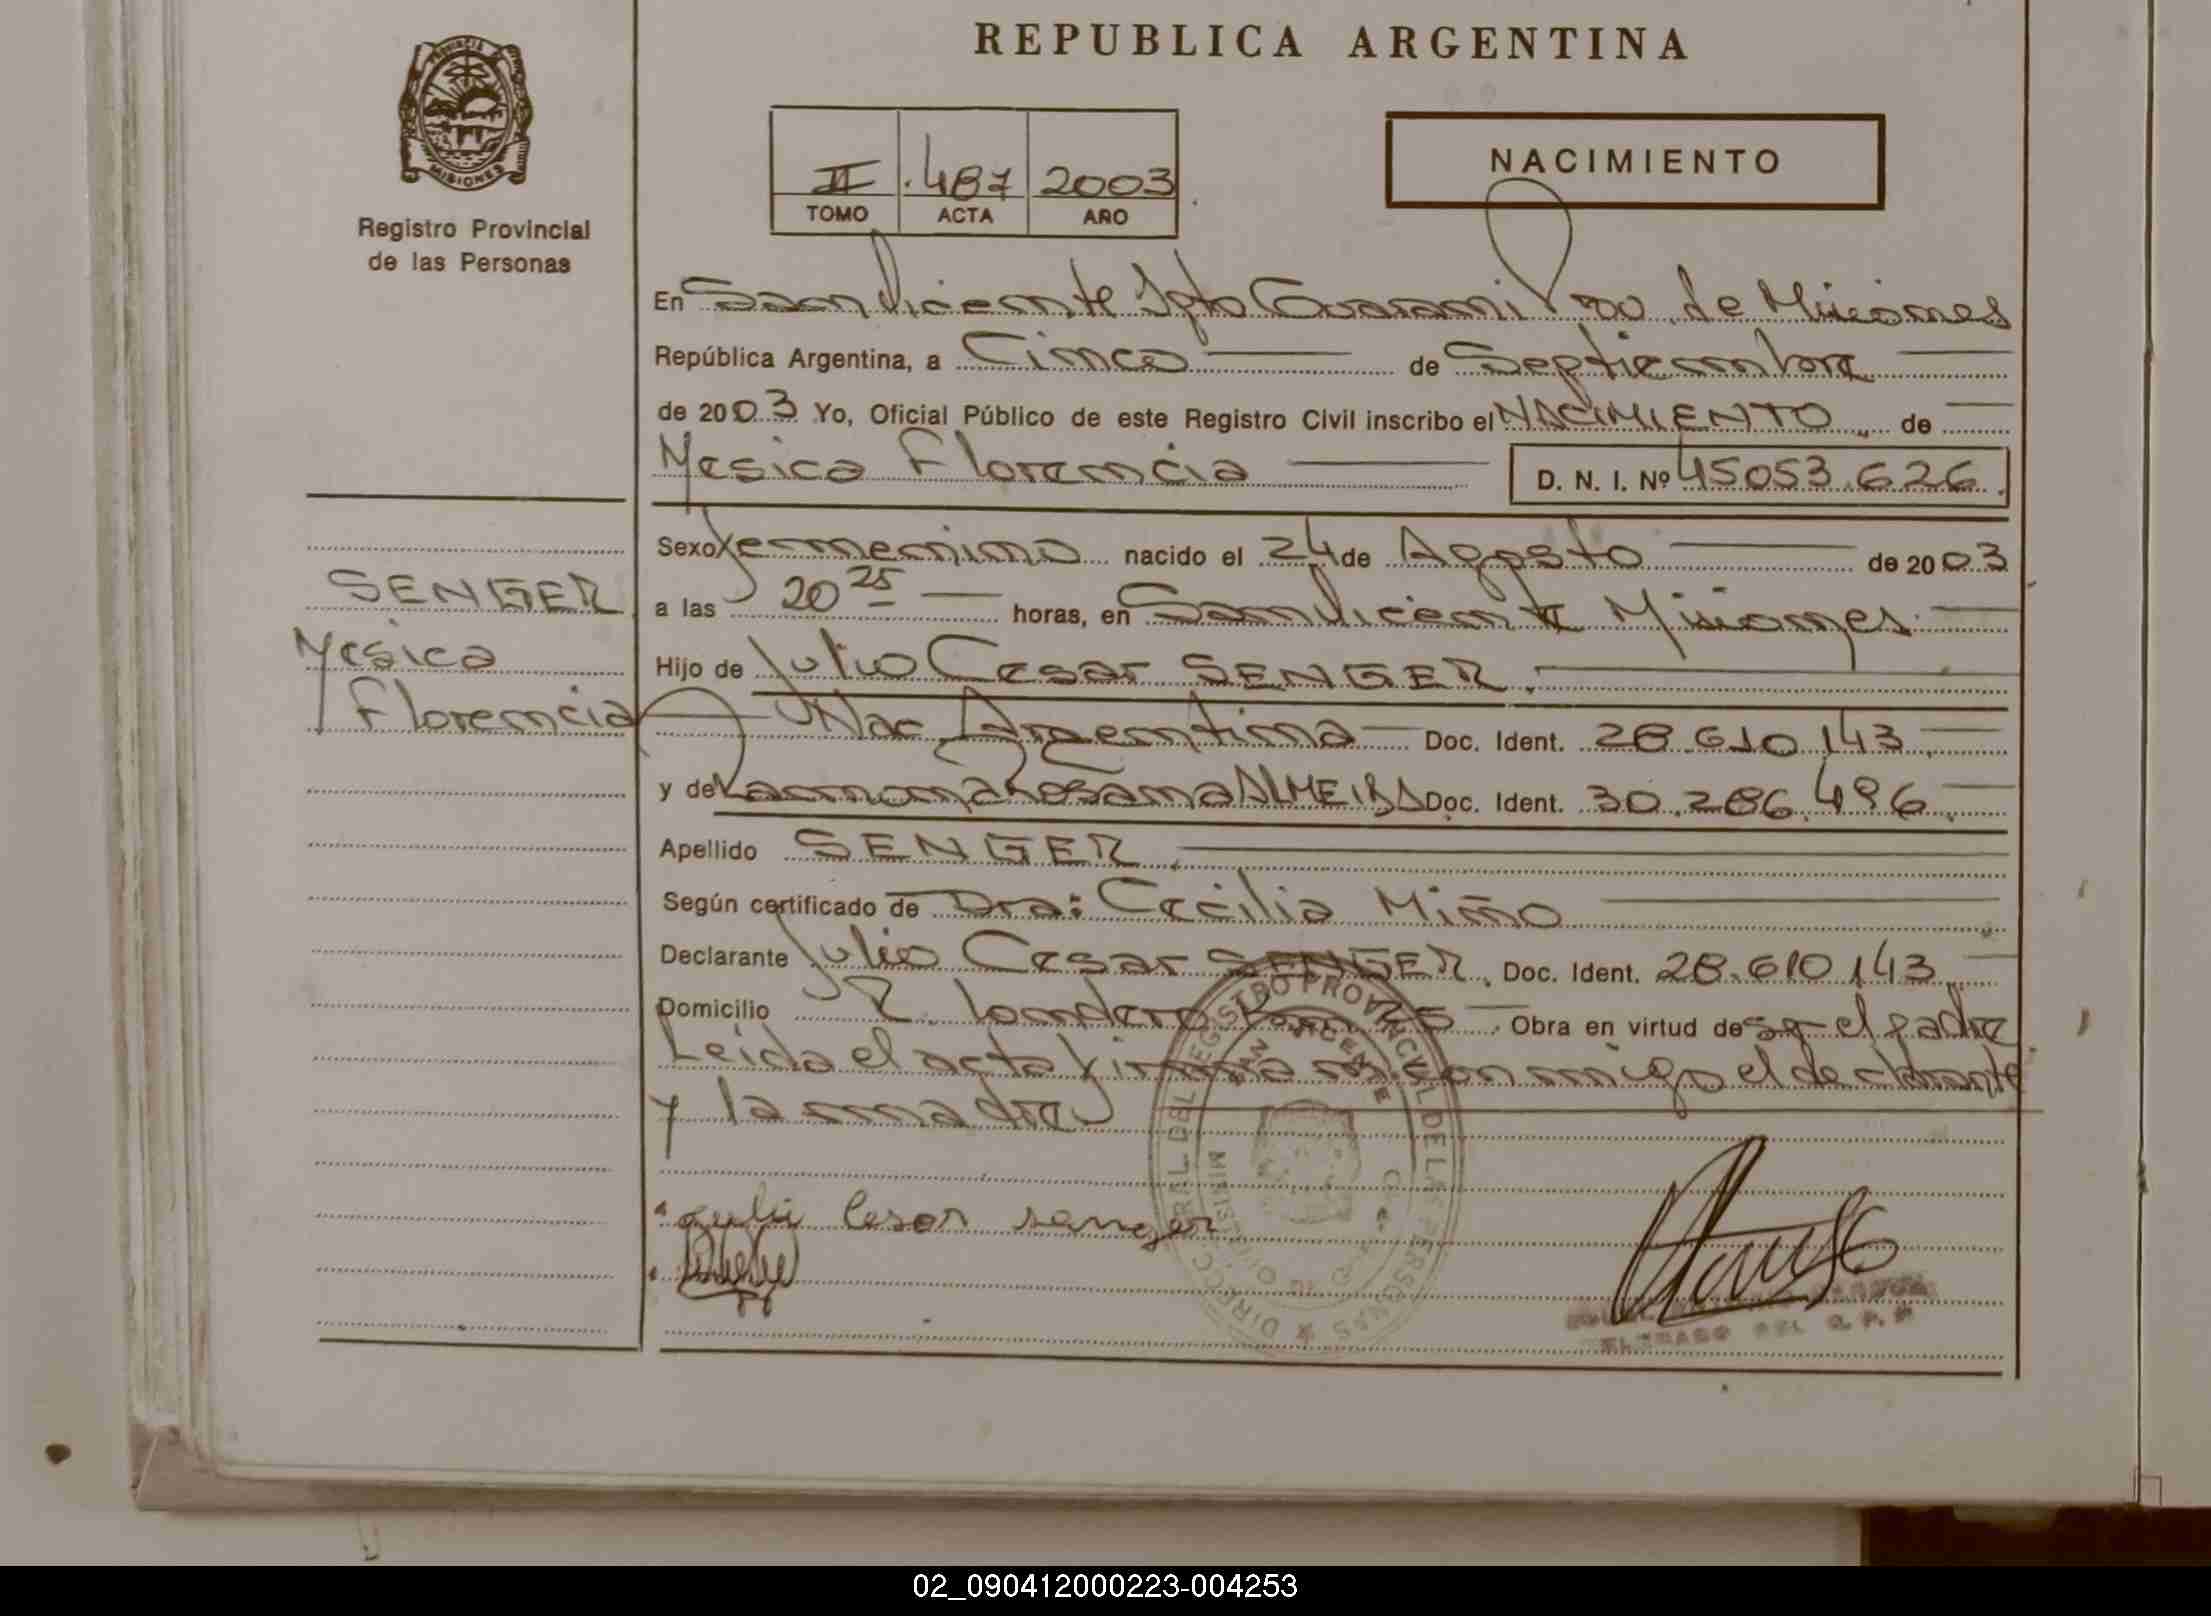 REPUBLICA ARGENTINA
PROVINCIA
MISIONES
Registro Provincial
de las Personas
II 487 2003
TOMO ACTA AÑO
NACIMIENTO
En San Vicente Dpto Guarani Pro. de Misiones
República Argentina, a Cinco de Septiembre
de 2003 Yo, Oficial Público de este Registro Civil inscribo el NACIMIENTO de
Yesica Florencia D. N. I. Nº 45053.626
Sexo femenino nacido el 24 de Agosto de 2003
a las 20 25 horas, en San Vicente Misiones
Hijo de Julio Cesar SENGER
Nac Argentina Doc. Ident. 28.610.143
y de Ramona Rosana ALMEIDA Doc. Ident. 30.286.496
Apellido SENGER
Según certificado de Dra: Cecilia Miño
Declarante Julio Cesar SENGER Doc. Ident. 28.610.143
Domicilio Obra en virtud de ser el padre
Leida el acta firma conmigo el declarante
y la madre
SENGER
Yesica
Florencia
Julio Cesar senger
DIRECC RAL DEL REGISTRO PROVINCIAL DE LAS PERSONAS
SAN VICENTE
02_090412000223-004253